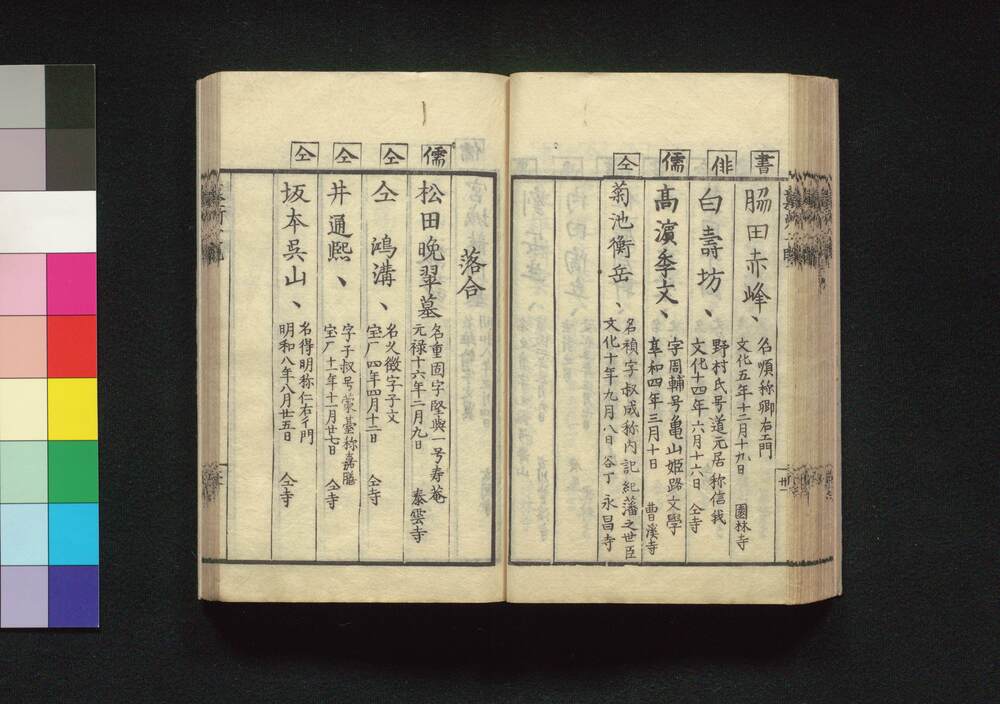 書
脇田赤峰、
名順称卿右エ門
文化五年十二月十九日 園林寺
俳
白壽坊、
野村氏号道元居称信我
文化十四年六月十六日 仝寺
儒
高濵季文、
字周輔号亀山姫路文學
享和四年三月十日 曹溪寺
仝
菊池衡岳、
名禎字叔成称内記紀藩之世臣
文化十年九月八日 谷丁 永昌寺
廿一
落合
儒
松田晩翠墓
名重固字堅與一号寿菴
元禄十六年二月九日 泰雲寺
仝
仝 鴻溝、
名久徴字子文
宝厂四年四月十二日 仝寺
仝
井通熙、
字子叔号蒙䑓称嘉膳
宝厂十一年十一月廿七日 仝寺
仝
坂本呉山、
名得明称仁右ヱ門
明和八年八月廿五日 仝寺